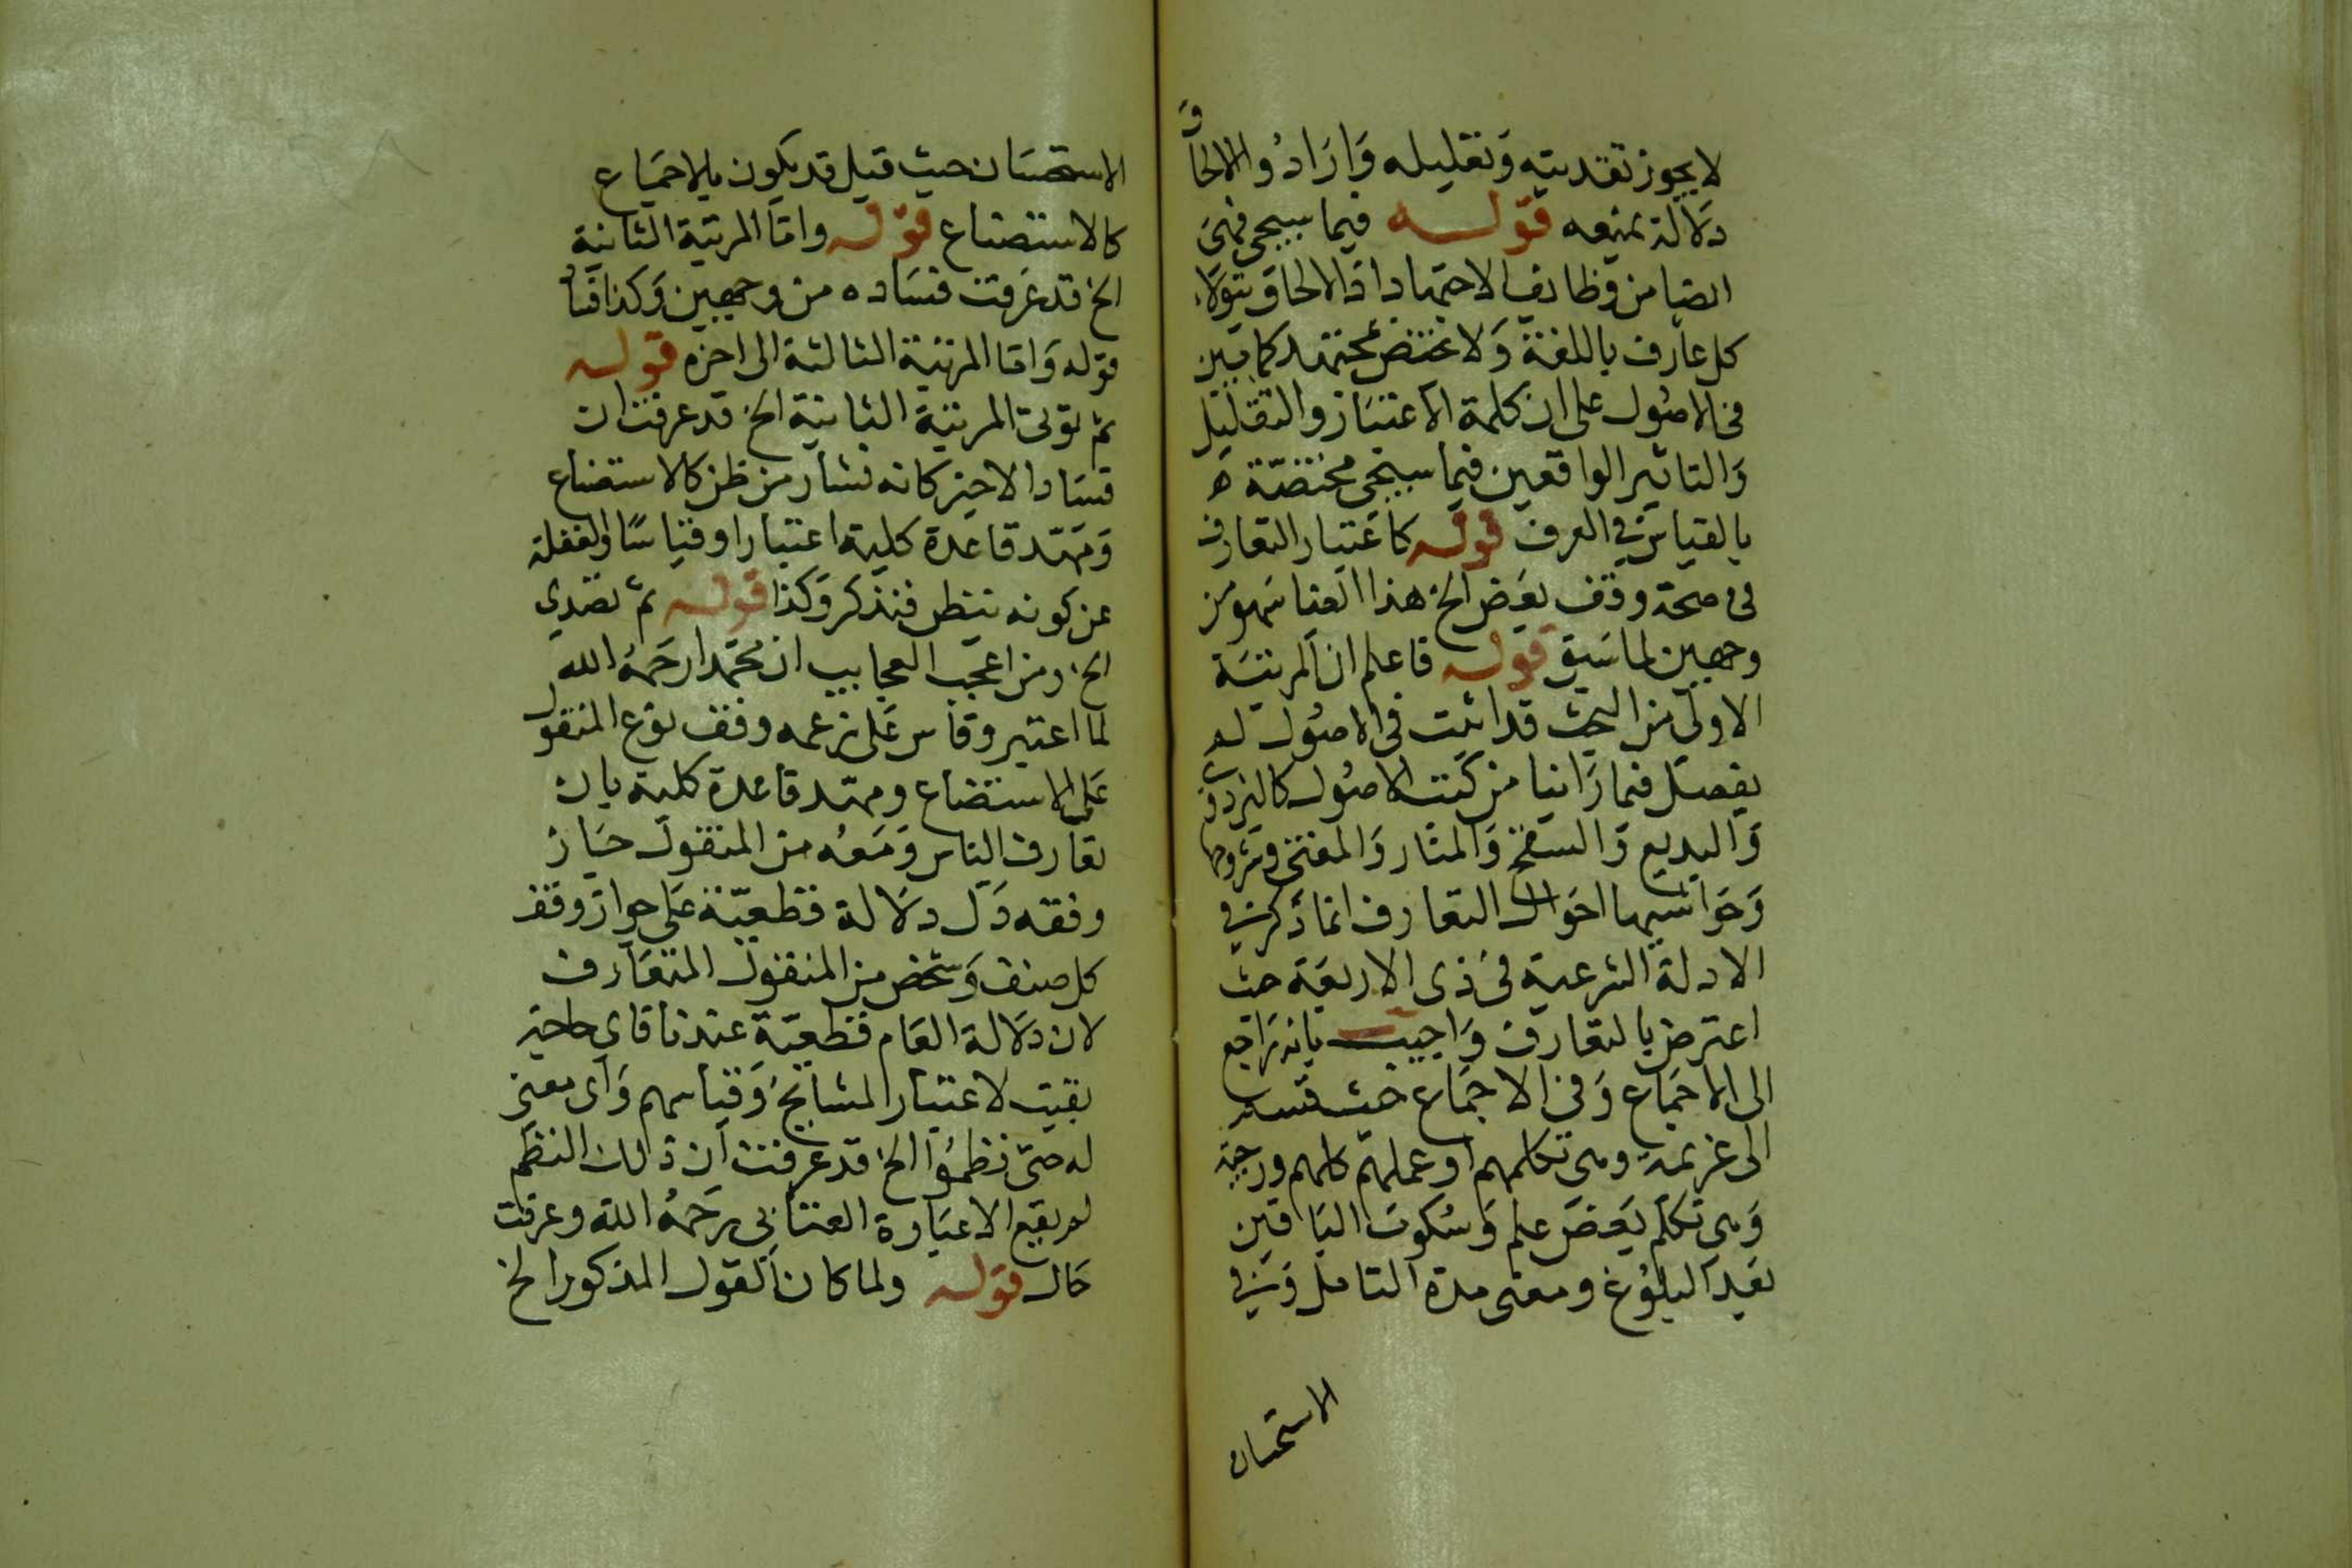 لا يجوز تعديته وتعليله وارادوا الالحاق
دلالة بمنعه قوله فيما سيجي فهي
ايضا من وظائف الاجتهاد اذ الالحاق يتولاه
كل عارف باللغة ولا يختص بمجتهد كما بين
في الاصول على ان كلمة الاعتبار والتعليل
والتاثير الواقعين فيما سيجي مختصة
بالقياس في العرف قوله كاعتبار التعارف
في صحة وقف بعض الخ هذا ايضا سهو من
وجهين لما سبق قوله فاعلم ان المرتبة
الاولى من البحث قد اثبت في الاصول لم
يفصل فيما راينا من كتب الاصول كالبزدوي
والبديع والتنقيح والمنار والمغني وشروحها
وحواشيها احوال التعارف انما ذكر في
الادلة الشرعية في ذى الاربعة حيث
اعترض بالتعارف واجيب بانه راجع
الى الاجماع وفي الاجماع حيث قسم
الى عزيمة وهي تكلمهم او عملهم كلهم ورخصة
وهي تكلم بعض علم وسكوت الباقين
بعد البلوغ ومضى مدة التامل وفي
الاستحسان
الاستحسان حيث قيل قد يكون بالاجماع
كالاستصناع قوله واما المرتبة الثانية
الخ قد عرفت فساده من وجهين وكذا فساد
قوله واما المرتبة الثالثة الى اخره قوله
ثم تولى المرتبة الثانية الخ قد عرفت ان
فساد الاخير كانه نشأ من ظن كالاستصناع
ومهد قاعدة كلية اعتبارا وقياسا والغفلة
عن كونه تنظر فتذكر وكذا قوله ثم تصدي
الخ ومن اعجب العجايب ان محمدا رحمه الله
لما اعتبر وقاس على زعمه وقف نوع المنقول
على الاستصناع ومهد قاعدة كلية بان
تعارف الناس وقفه من المنقول جاز
وقفه دل دلالة قطعية على جواز وقف
كل صنف وشخص من المنقول المتعارف
لان دلالة العام قطعية عندنا فاي حاجة
بقيت لاعتبار المشايخ وقياسهم واى معنى
له حتى نظموا الخ قد عرفت ان ذلك النظم
لم يقع الا عبارة العتابي رحمه الله وعرفت
حال قوله ولما كان القول المذكور الخ